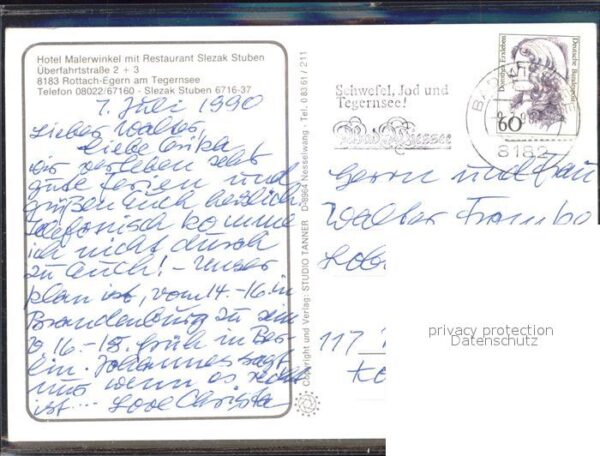 Hotel Malerwinkel mit Restaurant Slezak Stuben
Überfahrtstraße 2 + 3
8183 Rottach-Egern am Tegernsee
Telefon 08022/67160 - Slezak Stuben 6716-37
7. Juli 1990
Lieber Walter,
liebe Erika
wir verleben sehr
gute Ferien und
grüßen Euch herzlich
Telefonisch komme
ich nicht durch
zu Euch! - Unser
Plan ist, vom 14.-16. in
Brandenburg zu sein
16.-18. früh in Ber-
lin. Johannes sagt
uns wenn es recht
ist... Love Christa
Copyright und Verlag: STUDIO TANNER D-8964 Nesselwang · Tel. 0 83 61 / 2 11
Schwefel, Jod und
Tegernsee!
Bad Wiessee
BAD
8182
Dorothea Erxleben
Deutsche Bundespost
60
Herrn und Frau
Walter
117
privacy protection
Datenschutz